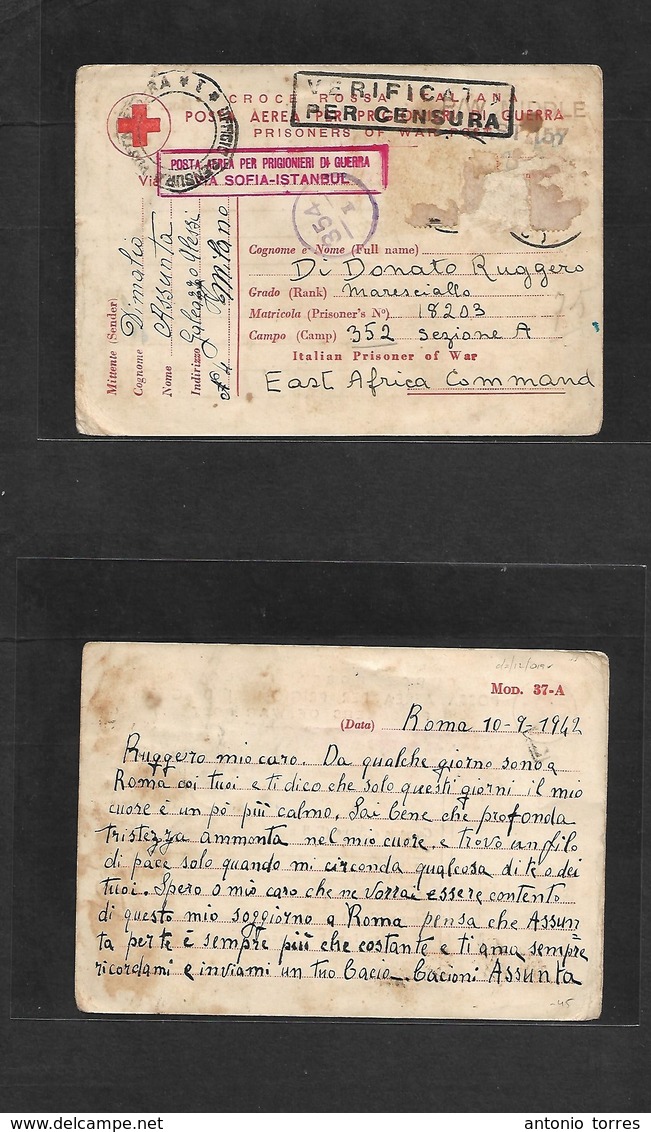 VERIFICATA
PER CENSURA
CROCE ROSSA ITALIANA
POSTA AEREA PER PRIGIONIERI DI GUERRA
PRISONERS OF WAR POST
POSTA AEREA PER PRIGIONIERI DI GUERRA
Via SOFIA-ISTANBUL
UFFICIO CENSURA
354
Mittente (Sender)
Cognome Dimalio
Nome Assunta
Indirizzo Galeazzo Alessi
Nº 4 Milano
Cognome e Nome (Full name)
Di Donato Ruggero
Grado (Rank) Maresciallo
Matricola (Prisoner's Nº) 18203
Campo (Camp) 352 Sezione A
Italian Prisoner of War
East Africa Command
Mod. 37-A
(Data) Roma 10-9-1942
Ruggero mio caro. Da qualche giorno sono a
Roma coi tuoi e ti dico che solo questi giorni il mio
cuore è un pò più calmo. Sai bene che profonda
tristezza ammonta nel mio cuore e trovo un filo
di pace solo quando mi circonda qualcosa di te o dei
tuoi. Spero o mio caro che ne vorrai essere contento
di questo mio soggiorno a Roma pensa che Assun
ta per te è sempre più che costante e ti ama sempre
ricordami e inviami un tuo bacio - bacioni Assunta
-45
antonio torres